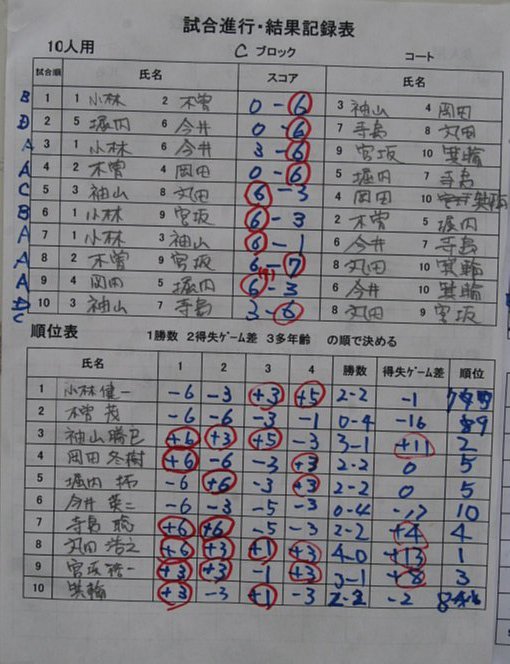 試合進行・結果記録表
10人用 C ブロック コート
試合順 氏名 スコア 氏名
B 1 1 小林 2 木曽 0 - 6 3 神山 4 岡田
D 2 5 堀内 6 今井 0 - 6 7 寺島 8 丸田
A 3 1 小林 6 今井 3 - 6 9 宮坂 10 箕輪
A 4 2 木曽 4 岡田 0 - 6 5 堀内 7 寺島
C 5 3 神山 8 丸田 6 - 3 4 岡田 10 箕輪
B 6 1 小林 9 宮坂 6 - 3 2 木曽 5 堀内
A 7 1 小林 3 神山 6 - 1 6 今井 7 寺島
A 8 2 木曽 9 宮坂 6 - 7 8 丸田 10 箕輪
A 9 4 岡田 5 堀内 6 - 3 6 今井 10 箕輪
D 10 3 神山 7 寺島 3 - 6 8 丸田 9 宮坂
C
順位表 1勝数 2得失ゲーム差 3多年齢 の順で決める
氏名 1 2 3 4 勝数 得失ゲーム差 順位
1 小林健一 -6 -3 +3 +5 2-2 -1
2 木曽 茂 -6 -6 -3 -1 0-4 -16 9
3 神山勝巳 +6 +3 +5 -3 3-1 +11 2
4 岡田冬樹 +6 -6 -3 +3 2-2 0 5
5 堀内 -6 +6 -3 +3 2-2 0 5
6 今井 英二 -6 -3 -5 -3 0-4 -17 10
7 寺島 聡 +6 +6 -5 -3 2-2 +4 4
8 丸田 浩之 +6 +3 +1 +3 4-0 +13 1
9 宮坂 +3 +3 -1 +3 3-1 +8 3
10 箕輪 +3 -3 +1 -3 2-2 -2 8